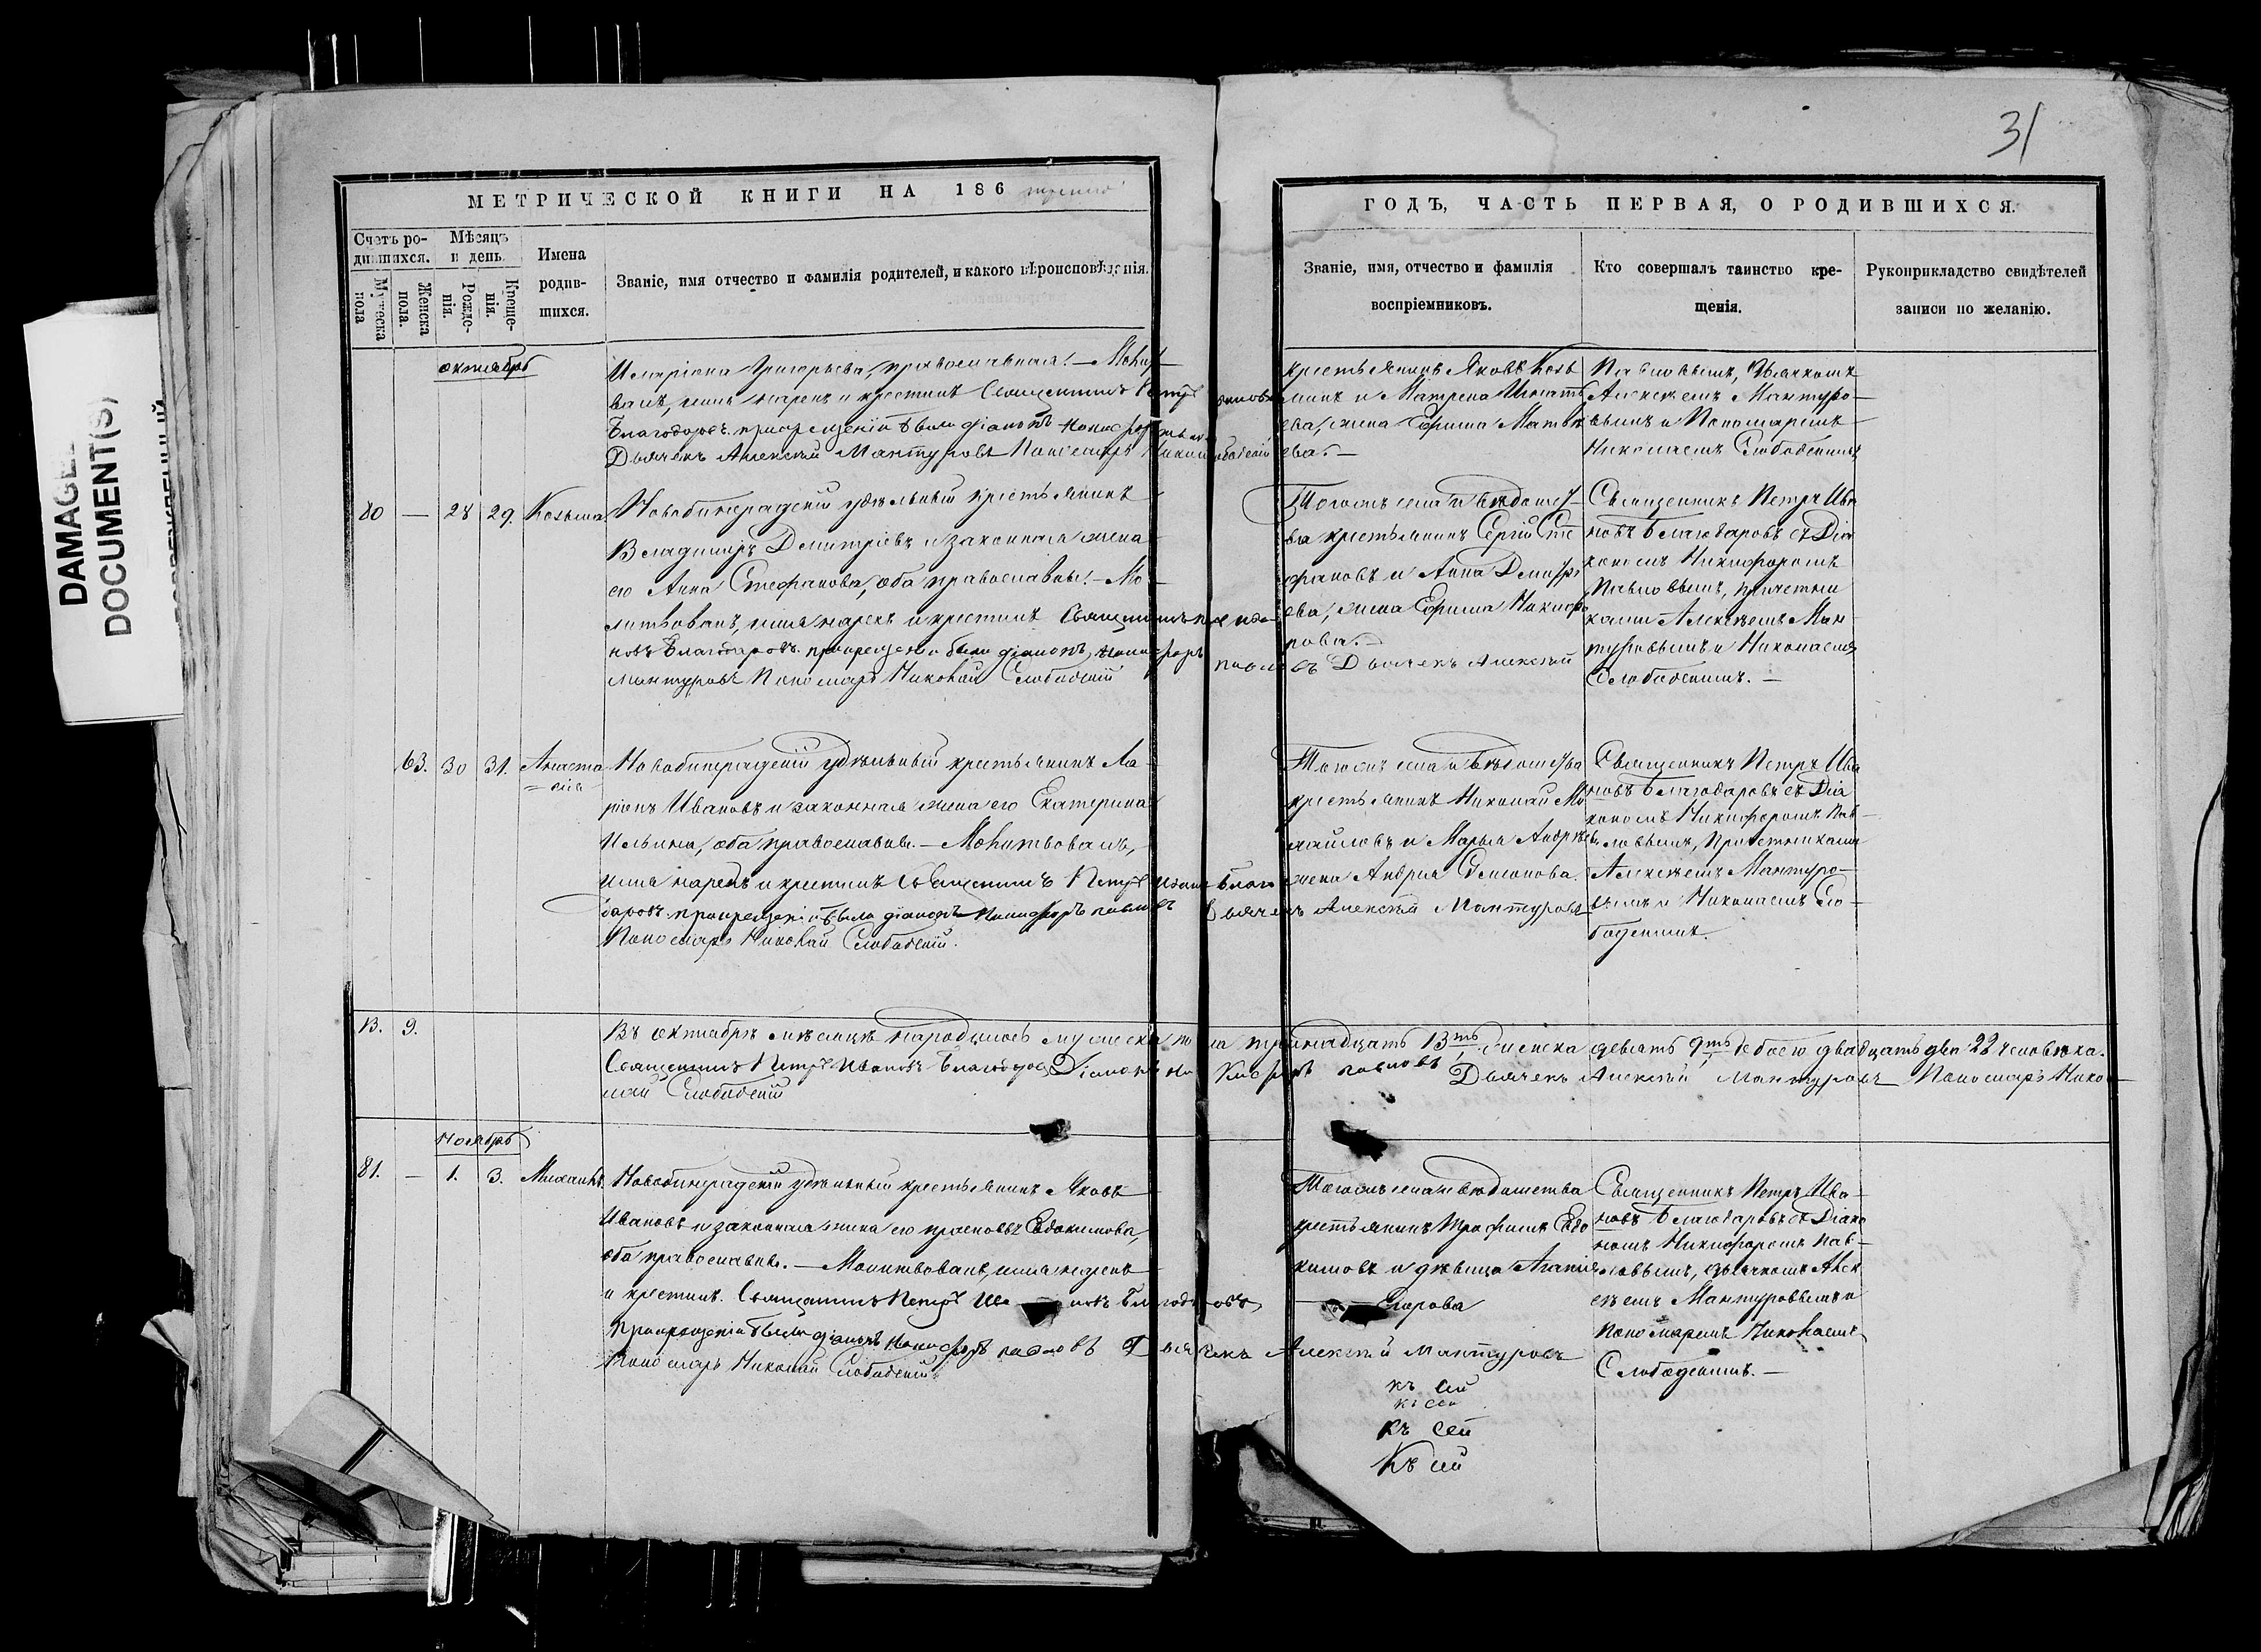 31
DAMAGE
DOCUMENT(S)
МЕТРИЧЕСКОЙ КНИГИ НА 186
ГОДЪ, ЧАСТЬ ПЕРВАЯ, О РОДИВШИХСЯ.
Счетъ ро-
дившихся.
Мѣсяцъ
и день.
Мужеска
пола
Женска
пола.
Рожде-
нія.
Креще-
нія.
Имена
родив-
шихся.
Званіе, имя отчество и фамилія родителей, и какого вѣроисповѣданія.
Званіе, имя, отчество и фамилія
воспріемниковъ.
Кто совершалъ таинство кре-
щенія.
Рукоприкладство свидѣтелей
записи по желанію.
октябрь
Иларіона Григорьева, православная. — Молит
валъ, имя нарекъ и крестилъ Священникъ Петръ Ивановъ
Благодаровъ. при крещеніи были діаконъ Никифоръ
Дьячекъ Алексѣй Мантуровъ Пономарь Николай
крестьянинъ Яковъ Козь
минъ и Матрена Игнать
ева, жена Ефима Матвѣ
ева. —
Павловымъ, Дьячкомъ
Алексѣемъ Мантуро-
вымъ и Пономаремъ
Николаемъ Слободскимъ
80 — 28 29. Козьма
удѣльный крестьянинъ
Владимиръ Дмитріевъ и законная жена
его Анна Стефанова, оба православные. — Мо-
литвовалъ, имя нарекъ и крестилъ Священникъ Петръ Ива-
новъ Благодаровъ. при крещеніи были діаконъ Никифоръ Павловъ Дьячекъ Алексѣй
Мантуровъ Пономарь Николай Слободскій
Тогожъ села и вѣдомст-
ва крестьянинъ Сергій Сте
фановъ и Анна Дмитрі
ева, жена Ефима Никифо
рова. —
Священникъ Петръ Ива
новъ Благодаровъ съ Діа
кономъ Никифоромъ
Павловымъ, причетни
ками Алексѣемъ Ман-
туровымъ и Николаемъ
Слободскимъ. —
63. 30 31. Анаста
= сія
удѣльный крестьянинъ Ла-
ріонъ Ивановъ и законная жена его Екатерина
Ильина, оба православные. — Молитвовалъ,
имя нарекъ и крестилъ Священникъ Петръ Ивановъ Благо
даровъ. при крещеніи были діаконъ Никифоръ Павловъ Дьячекъ Алексѣй Мантуровъ
Пономарь Николай Слободскій.
Тогожъ села и вѣдомства
крестьянинъ Николай Ми
хайловъ и Марья Андрѣева
жена Андрея Семионова.
Священникъ Петръ Ива
новъ Благодаровъ съ Діа
кономъ Никифоромъ Пав-
ловымъ, Причетниками
Алексѣемъ Мантуро-
вымъ и Николаемъ Сло-
бодскимъ.
13. 9.
Въ октябрѣ мѣсяцѣ народилось мужеска пола тринадцать 13ть женска девять 9ть обоего двадцать два 22 человѣка.
Священникъ Петръ Ивановъ Благодаровъ Діаконъ Никифоръ Павловъ Дьячекъ Алексѣй Мантуровъ Пономарь Нико-
лай Слободскій
Ноябрь
81. — 1. 3. Михаилъ
удѣльный крестьянинъ Яковъ
Ивановъ и законная жена его Евдокимова,
оба православные. — Молитвовалъ, имя нарекъ
и крестилъ. Священникъ Петръ Ивановъ Благодаровъ
при крещеніи были діаконъ Никифоръ Павловъ Дьячекъ Алексѣй Мантуровъ
Пономарь Николай Слободскій.
Тогожъ села и вѣдомства
крестьянинъ Трофимъ Евдо
кимовъ и дѣвица Агапія
Егорова
Священникъ Петръ Ива-
новъ Благодаровъ съ Діако
номъ Никифоромъ Пав-
ловымъ, дьячкомъ Алек
сѣемъ Мантуровымъ и
Пономаремъ Николаемъ
Слободскимъ. —
къ сей
къ сей
къ сей
Къ сей